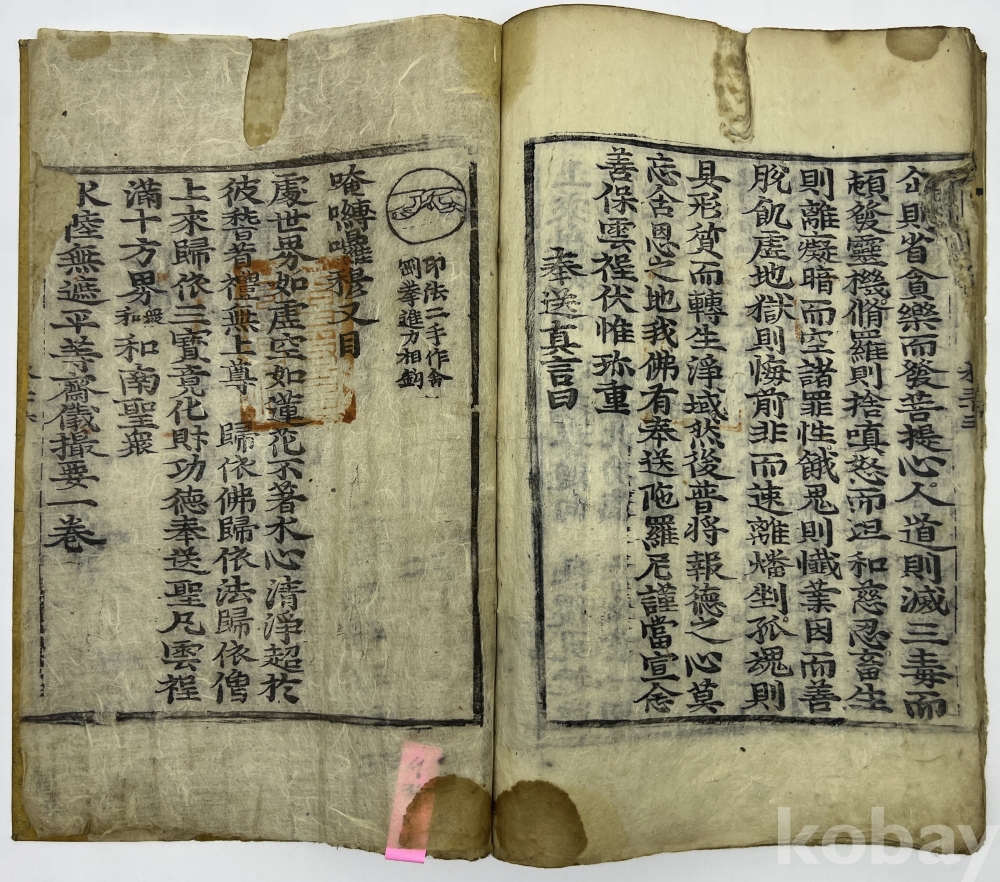 仚則省貪樂而發菩提心人道則滅三毒而
頓發靈機脩羅則捨嗔怒而坦和慈忍畜生
則離癡暗而空諸罪性餓鬼則懴業因而善
脫飢虛地獄則悔前非而速離燔剉孤魂則
具形質而轉生淨域然後普將報德之心莫
忘含恩之地我佛有奉送陁羅尼謹當宣念
善保雲程伏惟珎重
奉送真言曰
印法二手作金
剛拳進力相鉤
唵嚩囉穆叉目
處世界如虛空如蓮花不著水心清淨超於
彼稽首禮無上尊 歸依佛歸依法歸依僧
上來歸依三寶竟化財功德奉送聖凡雲程
滿十方界衆和和南聖衆
水陸無遮平等齋儀撮要一卷
kobay